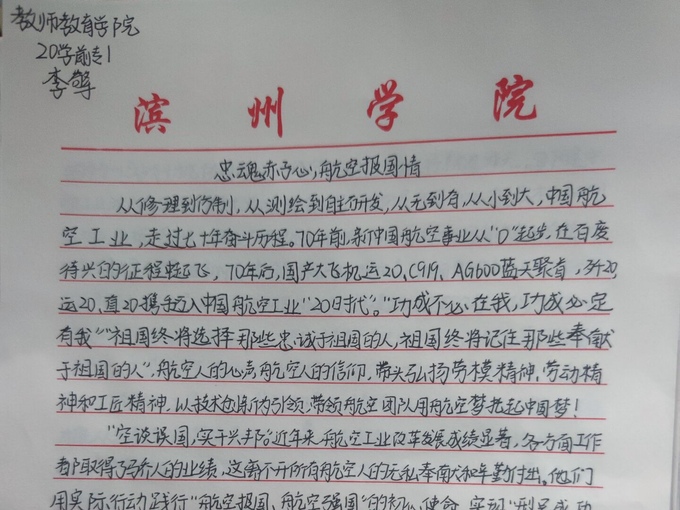 教师教育学院
20学前专1
李擎
滨州学院
忠魂赤子心,航空报国情
从修理到仿制,从测绘到自主研发,从无到有,从小到大,中国航
空工业,走过七十年奋斗历程。70年前,新中国航空事业从“0”起步,在百废
待兴的征程蜓飞,70年后,国产大飞机运20、C919、AG600蓝天聚首,歼20,
运20、直20携手迈入中国航空工业“20时代”。“功成不必在我,功成必定
有我”“祖国终将选择那些忠诚于祖国的人,祖国终将记住那些奉献
于祖国的人”,航空人的心声,航空人的信仰,带头弘扬劳模精神,劳动精
神和工匠精神,以技术创新为引领,带领航空团队用航空梦托起中国梦!
“空谈误国,实干兴邦”近年来,航空工业改革发展成绩显著,各方面工作
都取得了骄人的业绩,这离不开所有航空人的无私奉献和辛勤付出。他们
用实际行动践行“航空报国、航空强国”的初心使命,实现“型号成功